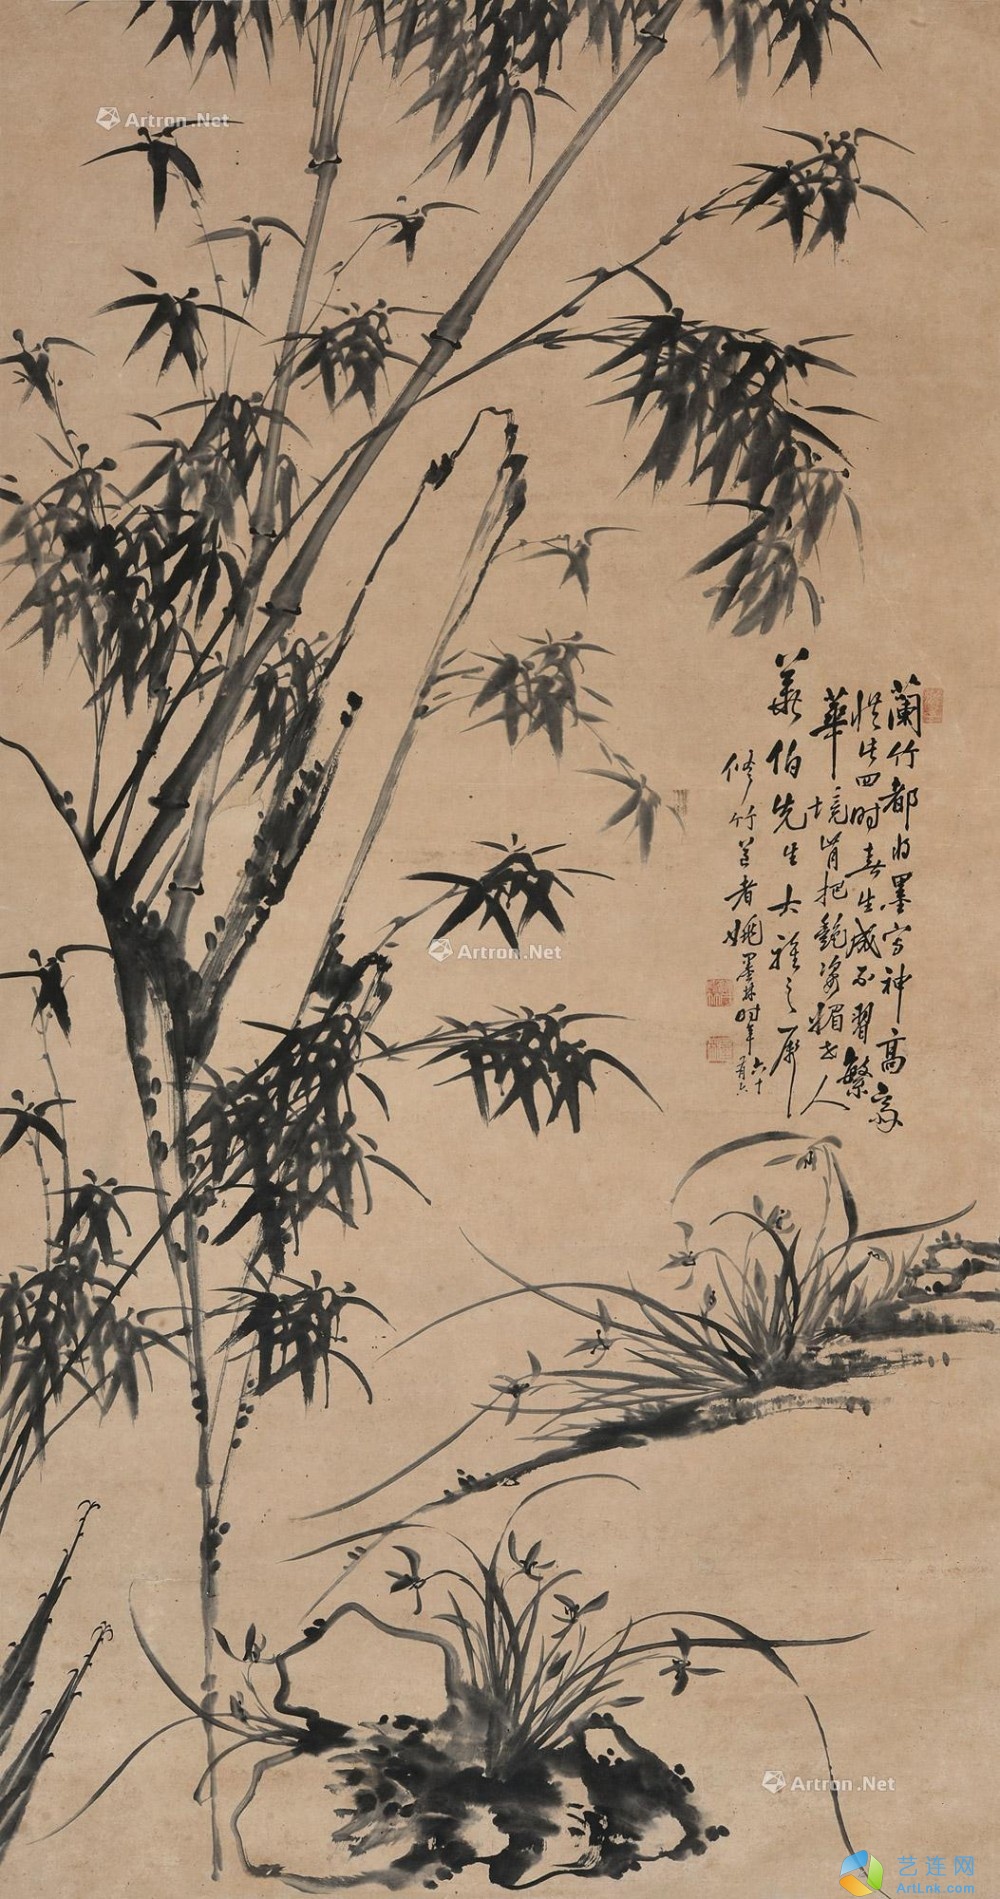 蘭竹都將墨寫神高窗
四時春生成不習繁
華境肯把艷姿媚世人
伯先生大雅之屬
修竹道者姚墨林時年六十有六
Artron.Net
Artron.Net
Artron.Net
艺连网
ArtLnk.com